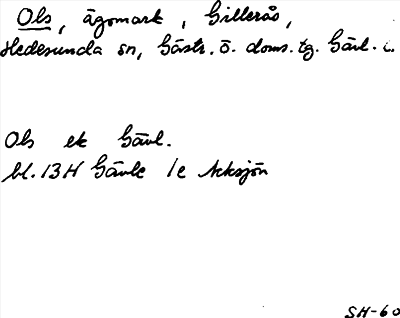 Ols, ägomark, Gillerås,
Hedesunda sn, Gästr. ö. doms. tg. Gävl. l.
Ols ek Gävl.
bl. 13H Gävle 1e Acksjön
SH-60